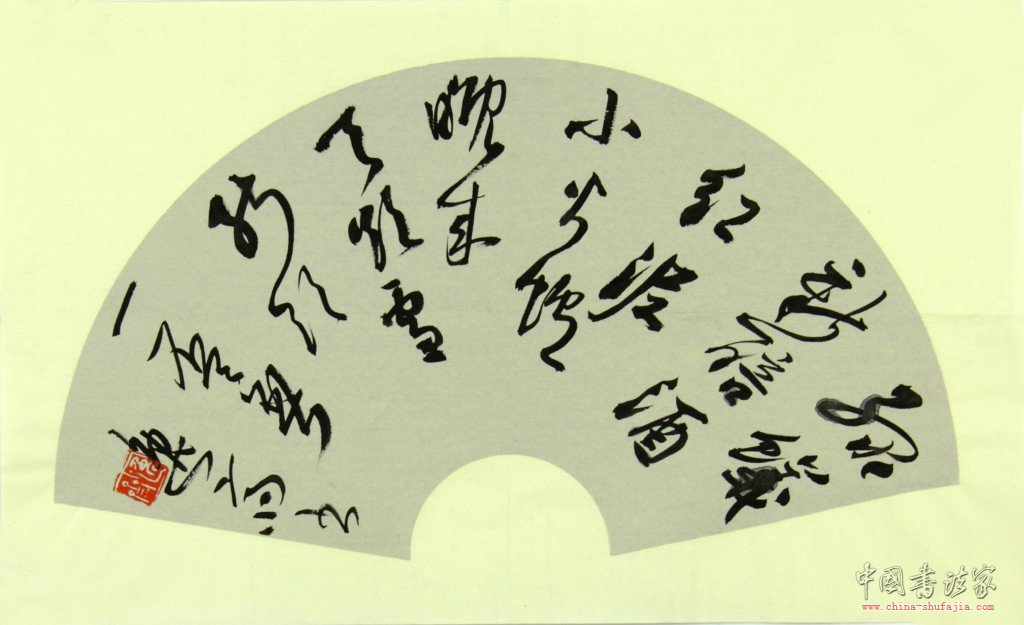 綠蟻
新醅酒
红泥
小火爐
晚来
天欲雪
能飲
一杯無
书
中國书法家
www.china-shufajia.com